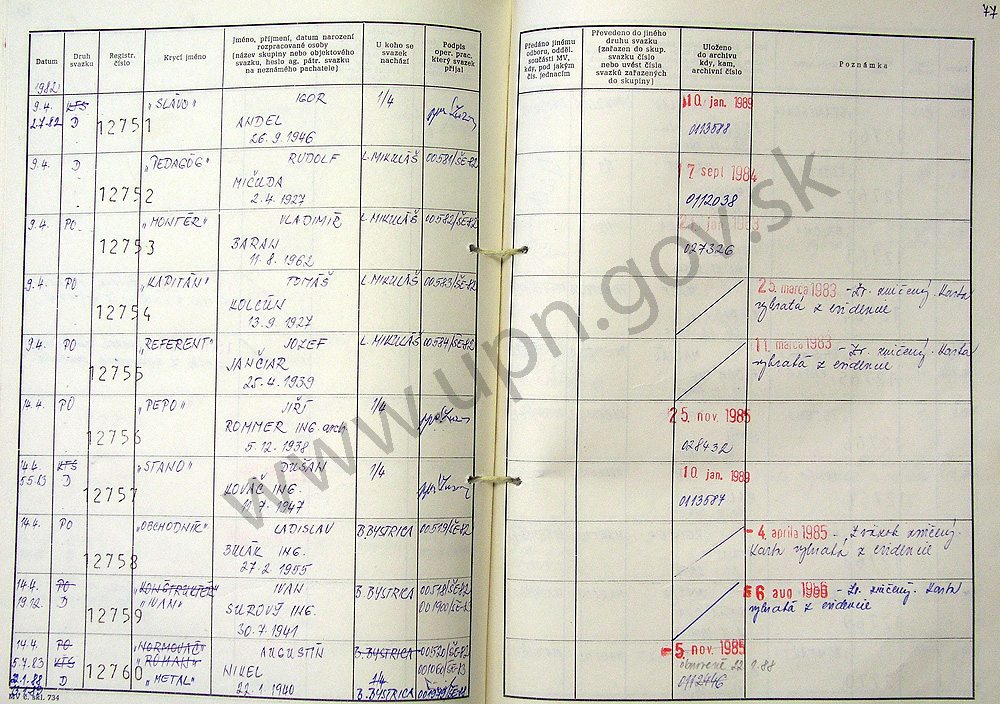 77
Datum
Druh svazku
Registr. číslo
Krycí jméno
Jméno, příjmení, datum narození
rozpracované osoby
(název skupiny nebo objektového
svazku, heslo ag. pátr. svazku
na neznámého pachatele)
U koho se
svazek
nachází
Podpis
oper. prac.
který svazek
přijal
Předáno jinému
odboru, odděl.
součásti MV,
kdy, pod jakým
čís. jednacím
Převedeno do jiného
druhu svazku
(zařazen do skup.
svazku číslo
nebo uvést čísla
svazků zařazených
do skupiny)
Uloženo
do archivu
kdy, kam,
archivní číslo
Poznámka
1982
9.4. KTS „SLÁVO" IGOR 1/4 10. jan. 1989
2.7.82 D 12751 ANDEL 0113588
26.9.1946
9.4. D „PEDAGÓG" RUDOLF L. MIKULÁŠ 00581/ŠE-82 17 sept 1984
12752 MIČUDA 0112038
2.4.1927
9.4. PO „MONTÉR" VLADIMÍR L. MIKULÁŠ 00582/ŠE-82 jan. 1983
12753 BARAN 027326
11.8.1962
9.4. PO „KAPITÁN" TOMÁŠ L. MIKULÁŠ 00583/ŠE-82 25. marca 1983 - Zv. zničený. Karta
12754 KOLCÚN vybratá z evidencie
13.9.1927
9.4. PO „REFERENT" JOZEF L. MIKULÁŠ 00584/ŠE-82 11. marca 1983 - Zv. zničený. Karta
12755 JANČIAR vybratá z evidencie
25.4.1939
14.4. PO „PEPO" JIŘÍ 1/4 25. nov. 1985
12756 ROMMER ING. arch. 028432
5.12.1938
14.4. KTS „STANO" DUŠAN 1/4 10. jan. 1989
5.5.83 D 12757 KOVÁČ ING. 0113587
11.7.1947
14.4. PO „OBCHODNÍK" LADISLAV B. BYSTRICA 00519/ŠE-82 - 4. apríla 1985 - Zväzok zničený.
12758 BULÁK ING. Karta vybratá z evidencie
27.2.1955
14.4. PO „KONŠTRUKTÉR" IVAN B. BYSTRICA 00518/ŠE-82 6 aug 1986 - Zv. zničený. Karta
19.12. D „IVAN" vybratá z evidencie
12759 SUROVÝ ING.
30.7.1941
14.4. PO „NORMOVAČ" AUGUSTÍN B. BYSTRICA 00520/ŠE-82 -5. nov. 1985
5.7.83 KTS „ROMAN"
12760 NIKEL 1/4
D „METAL" 22.1.1940 B. BYSTRICA 0112446
MV č. skl. 734
www.upn.gov.sk